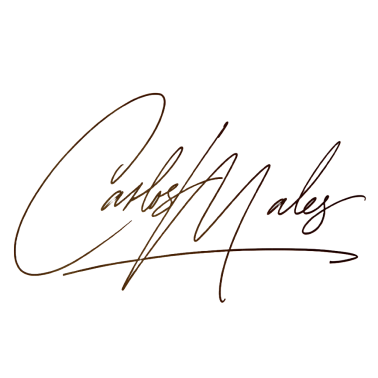 Carlos Males